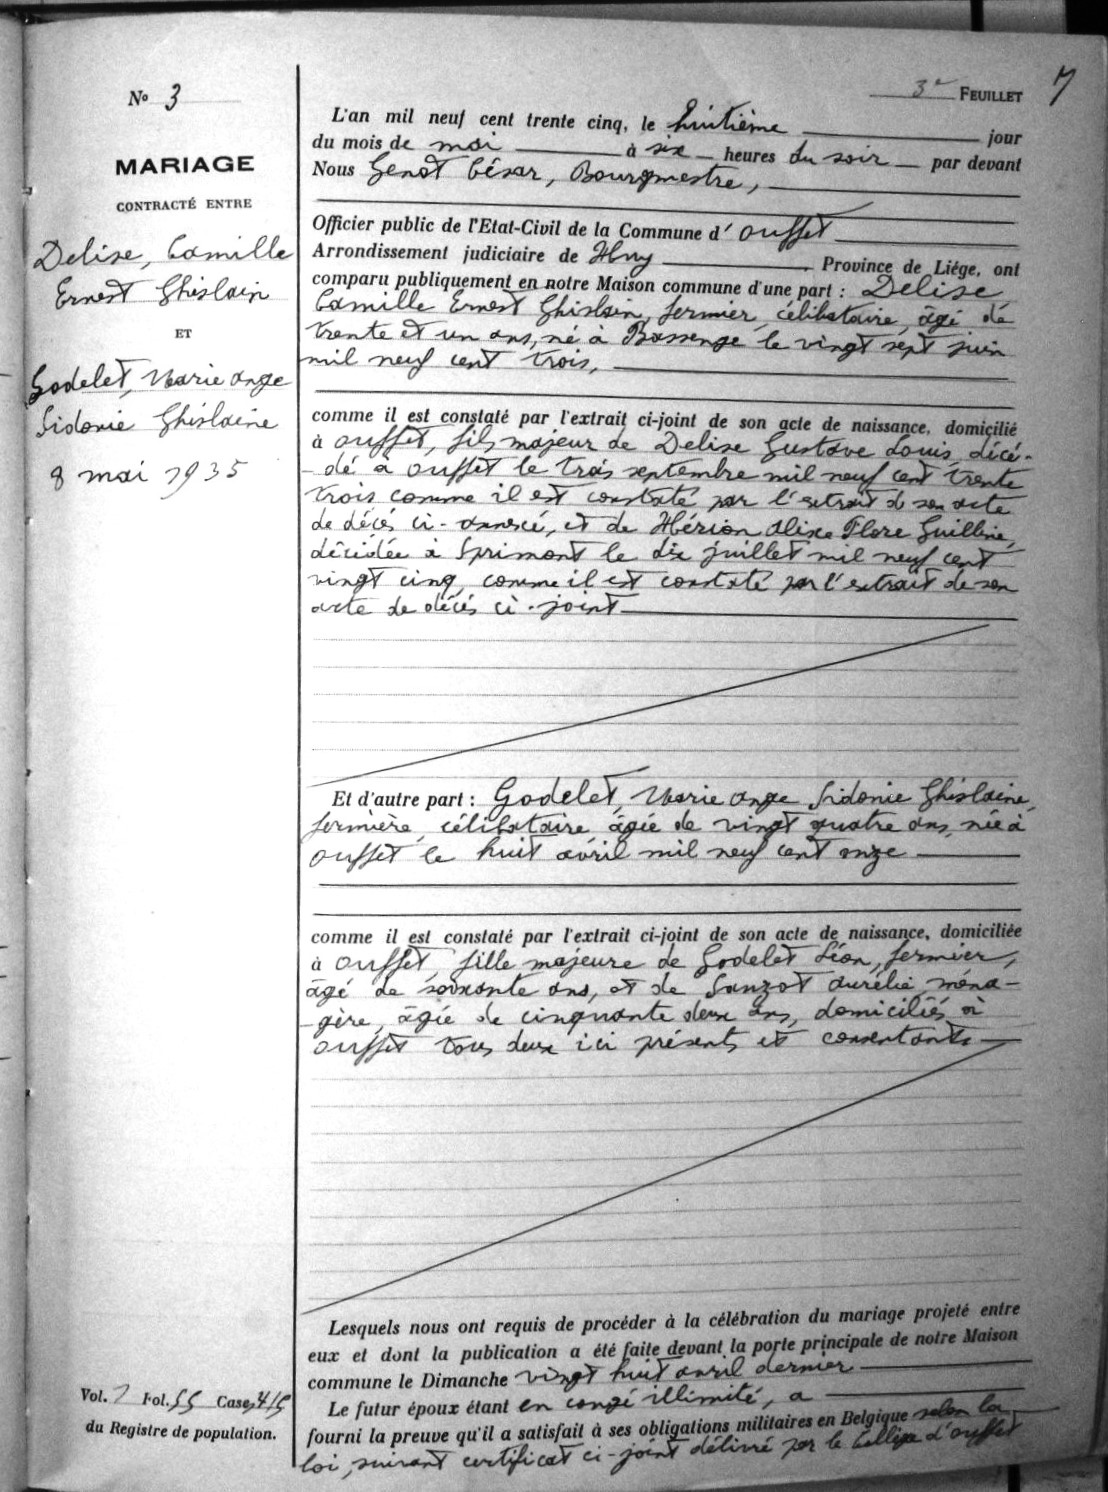 7
3e FEUILLET
No 3
MARIAGE
CONTRACTÉ ENTRE
Delise, Camille
Ernest Ghislain
ET
Godelet, Marie Ange
Sidonie Ghislaine
8 mai 1935
L'an mil neuf cent trente cinq, le huitième jour
du mois de mai à six heures du soir par devant
Nous Genot César, Bourgmestre,
Officier public de l'Etat-Civil de la Commune d'ouffet
Arrondissement judiciaire de Huy Province de Liége, ont
comparu publiquement en notre Maison commune d'une part : Delise
Camille Ernest Ghislain, fermier, célibataire, âgé de
trente et un ans, né à Bassenge le vingt sept juin
mil neuf cent trois,
comme il est constaté par l'extrait ci-joint de son acte de naissance, domicilié
à ouffet, fils majeur de Delise Gustave Louis décé-
-dé à ouffet le trois septembre mil neuf cent trente
trois comme il est constaté par l'extrait de son acte
de décès ci-annexé, et de Hérion Alixe Flore
décédée à Sprimont le dix juillet mil neuf cent
vingt cinq, comme il est constaté par l'extrait de son
acte de décès ci-joint
Et d'autre part : Godelet, Marie Ange Sidonie Ghislaine,
fermière, célibataire âgée de vingt quatre ans, née à
ouffet le huit avril mil neuf cent onze
comme il est constaté par l'extrait ci-joint de son acte de naissance, domiciliée
à ouffet, fille majeure de Godelet Léon, fermier,
âgé de soixante ans, et de Sanzot Aurélie ména-
-gère, âgée de cinquante deux ans, domiciliés à
ouffet tous deux ici présents et consentants
Lesquels nous ont requis de procéder à la célébration du mariage projeté entre
eux et dont la publication a été faite devant la porte principale de notre Maison
commune le Dimanche vingt huit avril dernier
Le futur époux étant en congé illimité, a
fourni la preuve qu'il a satisfait à ses obligations militaires en Belgique selon la
loi, suivant certificat ci-joint délivré par le Collège d'ouffet
Vol. 7 Fol. 55 Case, 4/5
du Registre de population.